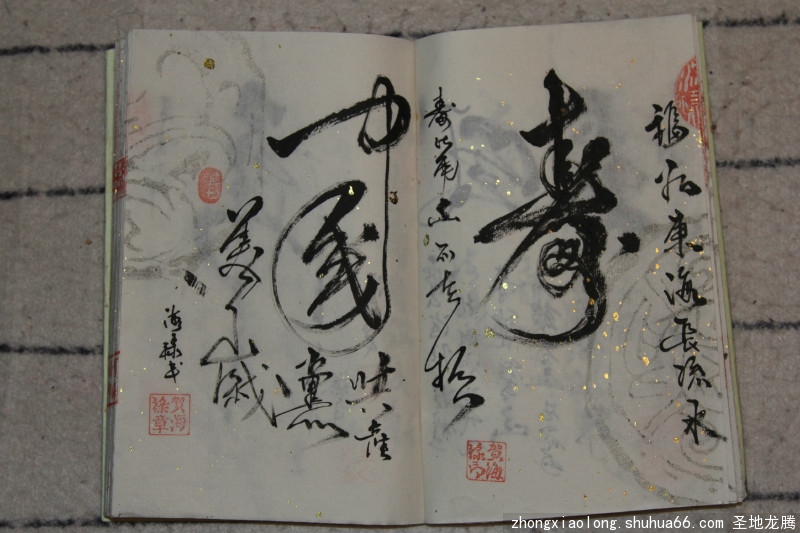 福如東海長流水
壽
壽比南山不老松
中國
產
黨
歲
海祿书
賀海
祿章
zhongxiaolong.shuhua66.com 圣地龙腾